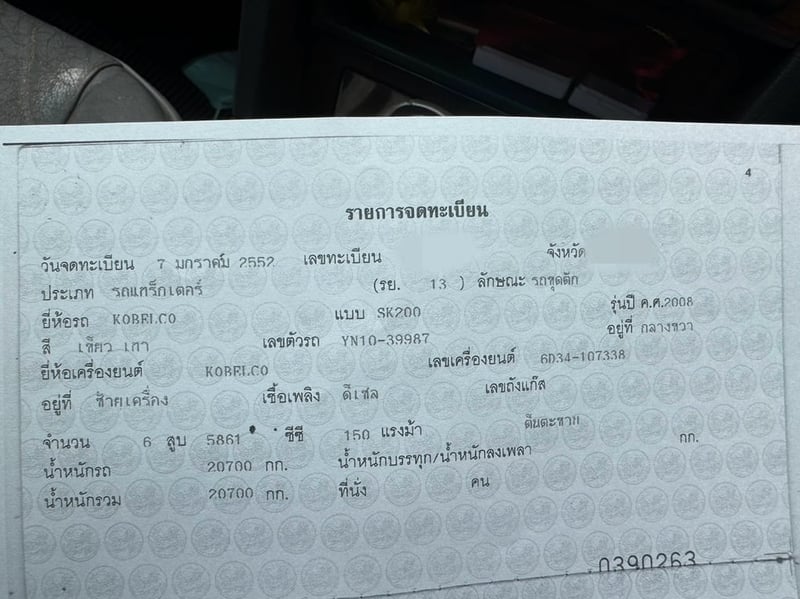 4
รายการจดทะเบียน
วันจดทะเบียน 7 มกราคม 2552 เลขทะเบียน จังหวัด
ประเภท รถแทร็กเตอร์ (รย. 13 ) ลักษณะ รถขุดตัก
ยี่ห้อรถ KOBELCO แบบ SK200 รุ่นปี ค.ศ.2008
สี เขียว เทา เลขตัวรถ YN10-39987 อยู่ที่ กลางขวา
ยี่ห้อเครื่องยนต์ KOBELCO เลขเครื่องยนต์ 6D34-107338
อยู่ที่ ซ้ายเครื่อง เชื้อเพลิง ดีเซล เลขถังแก๊ส
จำนวน 6 สูบ 5861 ซีซี 150 แรงม้า ตีนตะขาบ
น้ำหนักรถ 20700 กก. น้ำหนักบรรทุก/น้ำหนักลงเพลา กก.
น้ำหนักรวม 20700 กก. ที่นั่ง คน
0390263